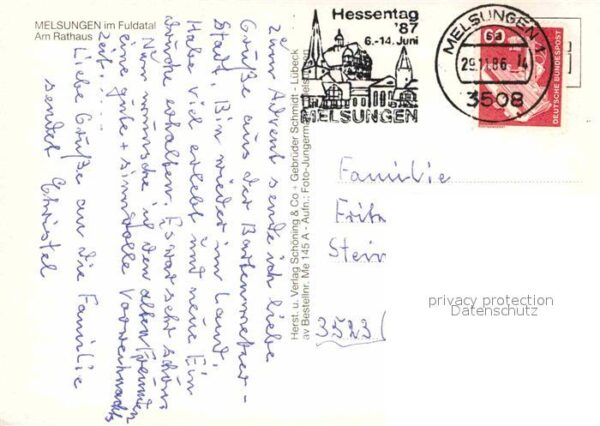 MELSUNGEN im Fuldatal
Am Rathaus
Zum Advent sende ich liebe
Grüße aus der Bartenwetzer-
stadt. Bin wieder im Land.
Habe viel erlebt und neue Ein
drücke erhalten. Es war sehr schön
Nun wünsche ich den alten Freunden
eine gute + sinnvolle Vorweihnachts
zeit.
Liebe Grüße an die Familie
sendet Christel
Herst. u. Verlag Schöning & Co + Gebrüder Schmidt, Lübeck
av Bestellnr. Me 145 A - Aufn.: Foto-Jungermann
Hessentag
'87
6.-14. Juni
MELSUNGEN
MELSUNGEN 1
29.11.86
14
3508
60
DEUTSCHE BUNDESPOST
Familie
Fritz
Stein
3523
privacy protection
Datenschutz